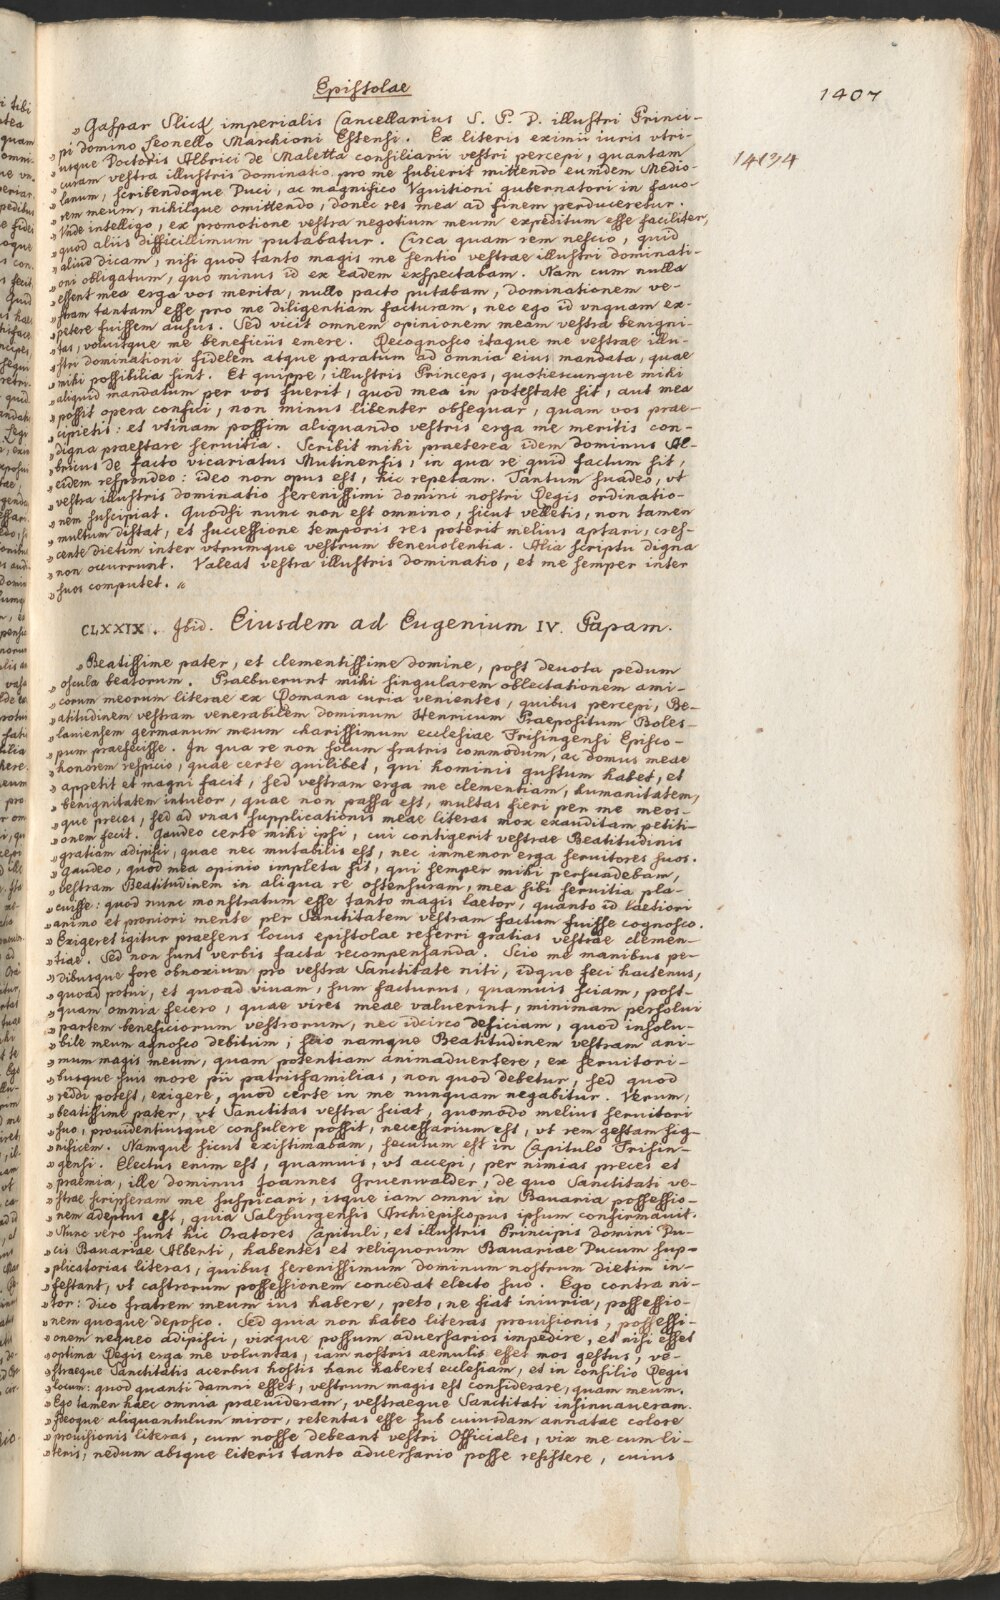 Epistolae
1407
14134
» Gaspar Slick imperialis Cancellarius S. P. D. illustri Princi-
» pi domino Leonello Marchioni Estensi. Ex literis eximii iuris vtri-
» usque Doctoris Albrici de Maletta consiliarii vestri percepi, quantam
» curam vestra illustris dominatio pro me subierit mittendo eumdem Medio-
» lanum, scribendoque Duci, ac magnifico Vguitioni gubernatori in fauo-
» rem meum, nihilque omittendo, donec res mea ad finem perduceretur.
» Vnde intelligo, ex promotione vestra negotium meum expeditum esse faciliter,
» quod aliis difficillimum putabatur. Circa quam rem nescio, quid
» aliud dicam, nisi quod tanto magis me sentio vestrae illustri dominati-
» oni obligatum, quo minus id ex eadem exspectabam. Nam cum nulla
» essent mea erga vos merita, nullo pacto putabam, dominationem ve-
» stram tantam esse pro me diligentiam facturam, nec ego id vnquam ex-
» petere fuissem ausus. Sed vicit omnem opinionem meam vestra benigni-
» tas, voluitque me beneficiis emere. Recognosco itaque me vestrae illu-
» stri dominationi fidelem atque paratum ad omnia eius mandata, quae
» mihi possibilia sint. Et quippe, illustris Princeps, quotiescunque mihi
» aliquid mandatum per vos fuerit, quod mea in potestate sit, aut mea
» possit opera confici, non minus libenter obsequar, quam vos prae-
» cipietis: et vtinam possim aliquando vestris erga me meritis con-
» digna praestare servitia. Scribit mihi praeterea idem dominus Al-
» bricus de facto vicariatus Mutinensis, in qua re quid factum sit,
» eidem respondeo: ideo non opus est, hic repetam. Tantum suadeo, vt
» vestra illustris dominatio serenissimi domini nostri Regis ordinatio-
» nem suscipiat. Quodsi nunc non est omnino, sicut velletis, non tamen
» multum distat, et successione temporis res poterit melius aptari, cres-
» cente dietim inter vtrumque vestrum beneuolentia. Alia scriptu digna
» non occurrunt. Valeat vestra illustris dominatio, et me semper inter
» suos computet. «
CLXXIX. Ibid. Eiusdem ad Eugenium IV. Papam.
» Beatissime pater, et clementissime domine, post deuota pedum
» oscula beatorum. Praebuerunt mihi singularem oblectationem ami-
» corum meorum literae ex Romana curia venientes, quibus percepi, Be-
» atitudinem vestram venerabilem dominum Henricum Praepositum Boles-
» laniensem germanum meum charissimum ecclesiae Frisingensi Episco-
» pum praefecisse. In qua re non solum fratris commodum, ac domus meae
» honorem respicio, quae certe quilibet, qui hominis gustum habet, et
» appetit et magni facit, sed vestram erga me clementiam, humanitatem,
» benignitatem intueor, quae non passa est, multas fieri per me meos-
» que preces, sed ad vnas supplicationis meae literas mox exauditam petiti-
» onem fecit. Gaudeo certe mihi ipsi, cui contigerit vestrae Beatitudinis
» gratiam adipisci, quae nec mutabilis est, nec immemor erga seruitores suos.
» Gaudeo, quod mea opinio impleta sit, qui semper mihi persuadebam,
» vestram Beatitudinem in aliqua re ostensuram, mea sibi seruitia pla-
» cuisse: quod nunc monstratum esse tanto magis laetor, quanto id laetiori
» animo et proniori mente per Sanctitatem vestram factum fuisse cognosco.
» Exigeret igitur praesens locus epistolae referri gratias vestrae clemen-
» tiae. Sed non sunt verbis facta recompensanda. Scio me manibus pe-
» dibusque fore obnoxium pro vestra Sanctitate niti, idque feci hactenus,
» quoad potui, et quoad viuam, sum facturus, quamuis sciam, post-
» quam omnia fecero, quae vires meae valuerint, minimam persolui
» partem beneficiorum vestrorum, nec idcirco deficiam, quod insolu-
» bile meum agnosco debitum; scio namque Beatitudinem vestram ani-
» mum magis meum, quam potentiam animaduertere, ex seruitori-
» busque suis more pii patrisfamilias, non quod debetur, sed quod
» reddi potest, exigere, quod certe in me nunquam negabitur. Verum,
» beatissime pater, vt Sanctitas vestra sciat, quomodo melius seruitori
» suo, prouidentiusque consulere possit, necessarium est, vt rem gestam sig-
» nificem. Namque sicut existimabam, secutum est in Capitulo Frisin-
» gensi. Electus enim est, quamuis, vt accepi, per nimias preces et
» praemia, ille dominus Joannes Gruenwalder, de quo Sanctitati ve-
» strae scripseram me suspicari, isque iam omni in Bauaria possessio-
» nem adeptus est, quia Salzburgensis Archiepiscopus ipsum confirmauit.
» Nunc vero sunt hic Oratores Capituli, et illustris Principis domini Du-
» cis Bauariae Alberti, habentes et reliquorum Bauariae Ducum sup-
» plicatorias literas, quibus serenissimum dominum nostrum dietim in-
» festant, vt castrorum possessionem concedat electo suo. Ego contra ni-
» tor: dico fratrem meum ius habere, peto, ne fiat iniuria, possessio-
» nem quoque deposco. Sed quia non habeo literas prouisionis, possessi-
» onem nequeo adipisci, vixque possum aduersarios impedire, et nisi esset
» optima Regis erga me voluntas, iam nostris aemulis esset mos gestus, ve-
» straeque Sanctitatis acerbus hostis hanc haberet ecclesiam, et in consilio Regis
» locum: quod quanti damni esset, vestrum magis est considerare, quam meum.
» Ego tamen haec omnia praeuideram, vestraeque Sanctitati insinuaueram.
» Ideoque aliquantulum miror, retentas esse sub cuiusdam annatae colore
» prouisionis literas, cum nosse debeant vestri Officiales, vix me cum li-
» teris, nedum absque literis tanto aduersario posse resistere, cuius